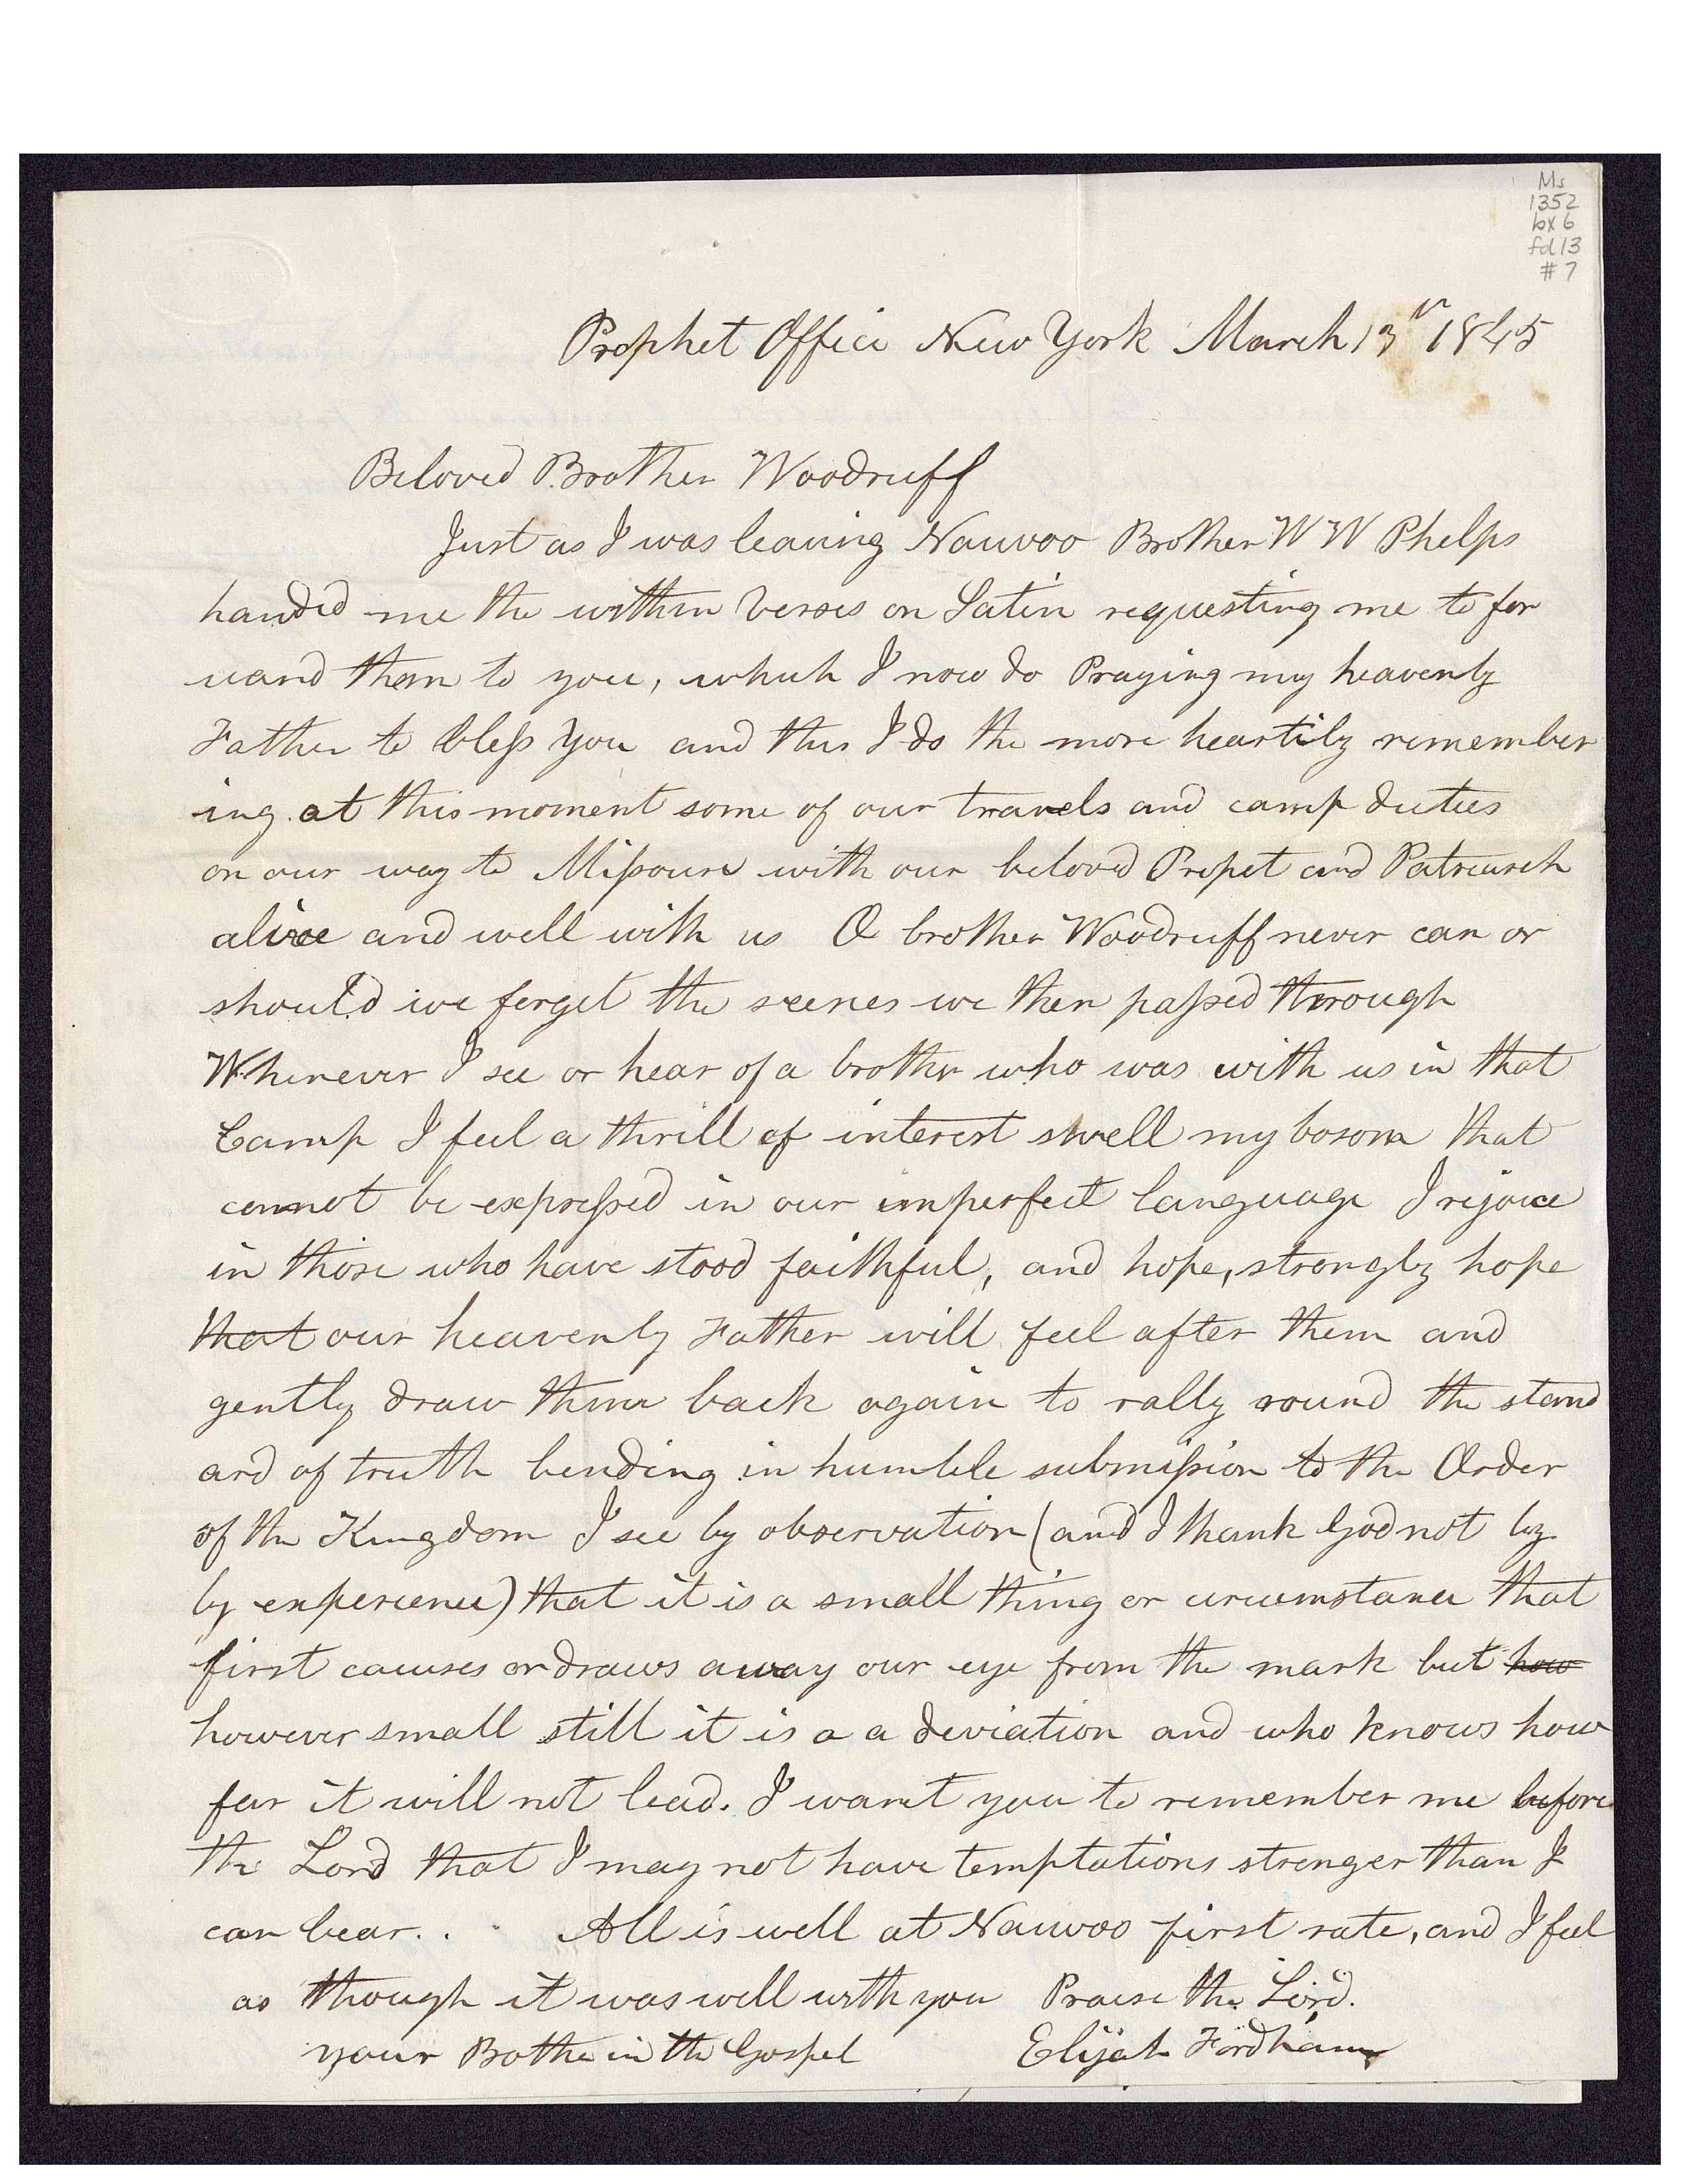 Ms
1352
bx 6
fd 13
# 7
Prophet Office New York March 13th 1845
Beloved Brother Woodruff
Just as I was leaving Nauvoo Brother W W Phelps
handed me the within verses on Satin requesting me to for
ward them to you, which I now do Praying my heavenly
Father to bless you and this I do the more heartily remember
ing at this moment some of our travels and camp duties
on our way to Missouri with our beloved Propet and Patriarch
alive and well with us O brother Woodruff never can or
should we forget the scenes we then passed through
Whenever I see or hear of a brother who was with us in that
Camp I feel a thrill of interest swell my bosom that
cannot be expressed in our imperfect language I rejoice
in those who have stood faithful, and hope, strongly hope
that our heavenly Father will feel after them and
gently draw them back again to rally round the stand
ard of truth bending in humble submission to the Order
of the Kingdom I see by observation (and I thank God not by
by experience) that it is a small thing or circumstance that
first causes or draws away our eye from the mark but how
however small still it is a a deviation and who knows how
far it will not lead. I want you to remember me before
the Lord that I may not have temptations stronger than I
can bear. . All is well at Nauvoo first rate, and I feel
as though it was well with you Praise the Lord.
your Bothe in the Gospel Elijah Fordham